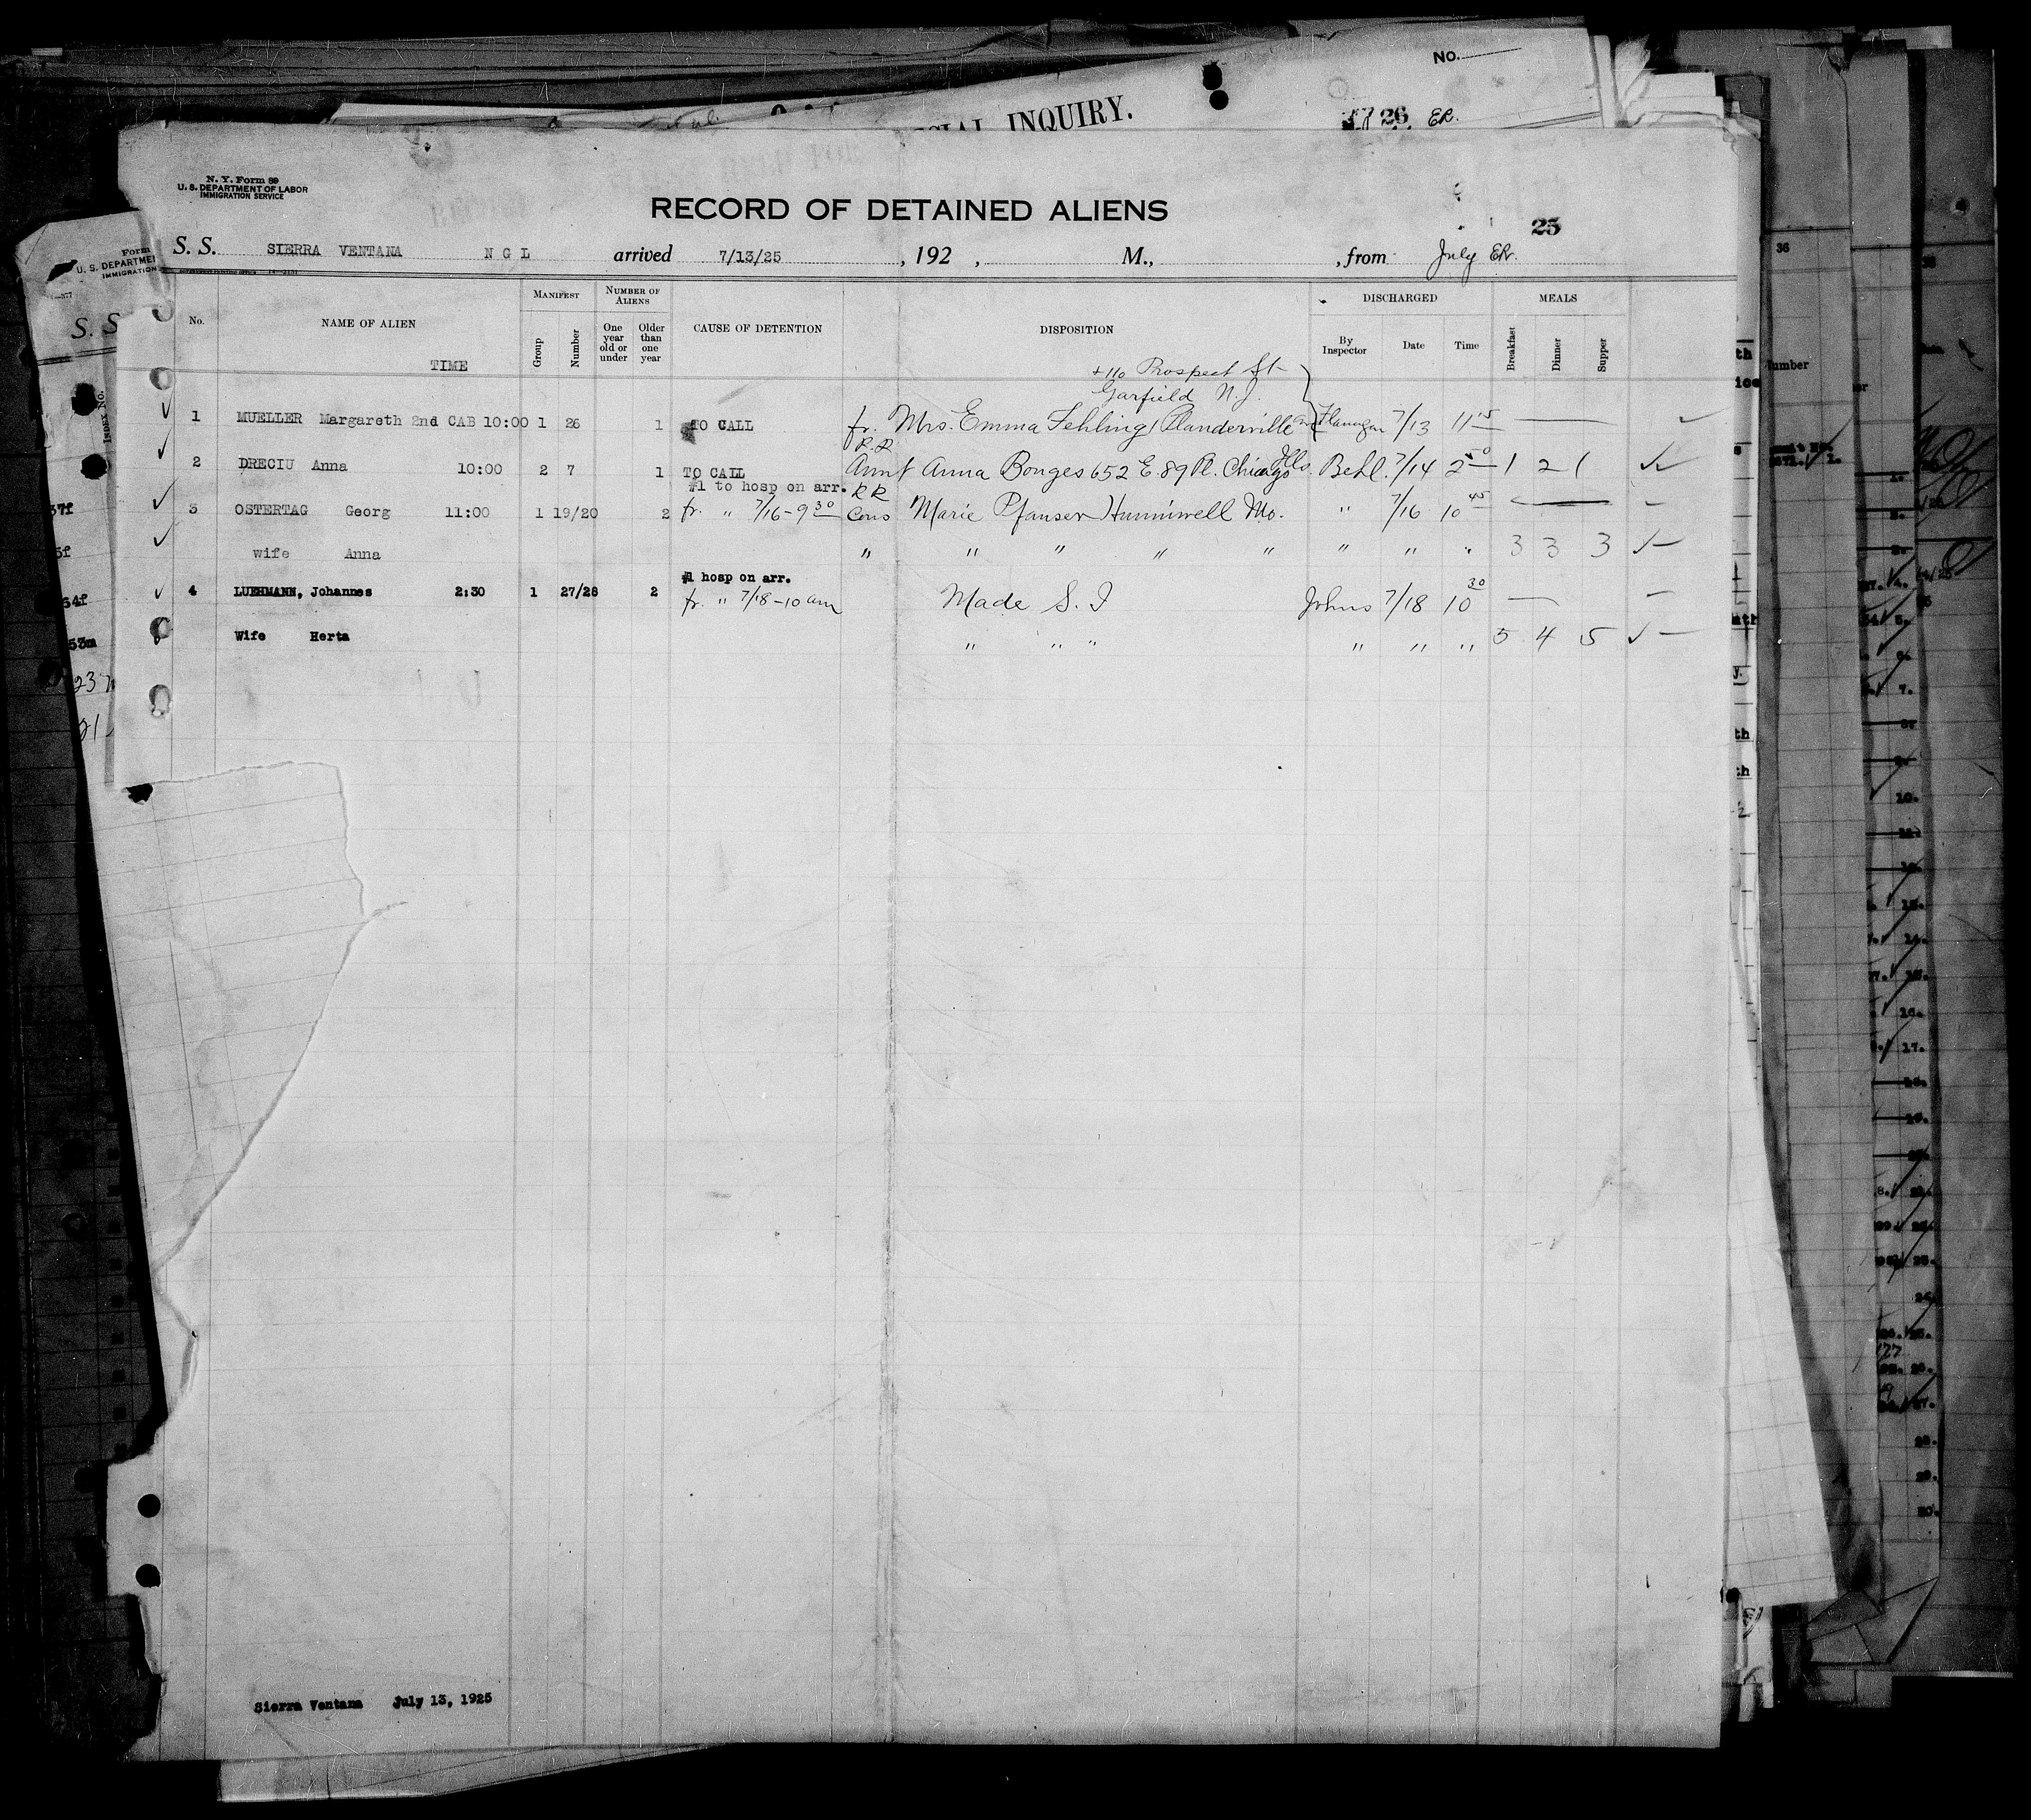 NO.
SPECIAL INQUIRY.
26 ER.
N. Y. Form 89
U. S. DEPARTMENT OF LABOR
IMMIGRATION SERVICE
RECORD OF DETAINED ALIENS
25
S. S. SIERRA VENTANA N G L arrived 7/13/25 , 192 , M., , from July ER.
No. NAME OF ALIEN TIME MANIFEST Group Number NUMBER OF ALIENS One year old or under Older than one year CAUSE OF DETENTION DISPOSITION DISCHARGED By Inspector Date Time MEALS Breakfast Dinner Supper
+110 Prospect St
Garfield N.J.
1 MUELLER Margareth 2nd CAB 10:00 1 26 1 TO CALL fr. Mrs. Emma Fehling Flanagan 7/13 11 15
RR
2 DRECIU Anna 10:00 2 7 1 TO CALL Aunt Anna Bonges 652 E. 89 Pl. Chicago Ills. Behl. 7/14 2 50 1 2 1
#1 to hosp on arr. RR
3 OSTERTAG Georg 11:00 1 19/20 2 fr. " 7/16-9 30 Cous Marie Pfanser Hunniwell Mo. " 7/16 10 45
wife Anna " " " " " " " " 3 3 3
#1 hosp on arr.
4 LUEHMANN, Johannes 2:30 1 27/28 2 fr. " 7/18-10 am Made S. I Johns 7/18 10 30
Wife Herta " " " " " " 5 4 5
Sierra Ventana July 13, 1925
Form
U. S. DEPARTME
IMMIGRATION
S. S
INDEX No.
37f
5f
64f
53m
23
21
36
umber